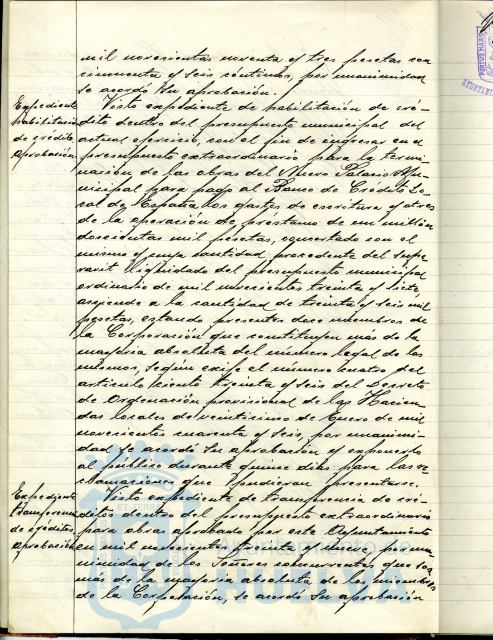 mil novecientas noventa y tres pesetas con
cincuenta y seis céntimos, por unanimidad
se acordó su aprobación.
Expediente
habilitación
de crédito,
aprobación
Visto expediente de habilitación de cré-
dito dentro del presupuesto municipal del
actual ejercicio, con el fin de ingresar en el
presupuesto extraordinario para la termi-
nación de las obras del Nuevo Palacio Mu-
nicipal para pago al Banco de Crédito Lo-
cal de España los gastos de escritura y otros
de la operación de préstamo de un millón
doscientas mil pesetas, concertado con el
mismo y cuya cantidad, procedente del supe-
ravit liquidado del presupuesto municipal
ordinario de mil novecientos treinta y siete
asciende a la cantidad de treinta y seis mil
pesetas, estando presentes doce miembros de
la Corporación que constituyen más de la
mayoría absoluta del número legal de los
mismos, según exige el número cuatro del
artículo ciento treinta y seis del Decreto
de Ordenación provisional de las Hacien-
das locales de veinticinco de Enero de mil
novecientos cuarenta y seis, por unanimi-
dad se acordó su aprobación y exponerlo
al público durante quince días para las re-
clamaciones que pudieran presentarse.
Expediente
transferencia
de créditos,
aprobación
Visto expediente de transferencia de cré-
ditos dentro del presupuesto extraordinario
para obras aprobado por este Ayuntamiento
en mil novecientos treinta y nueve, por una-
nimidad de los Señores concurrentes que son
más de la mayoría absoluta de los miembros
de la Corporación, se acordó su aprobación
Ayuntamiento de